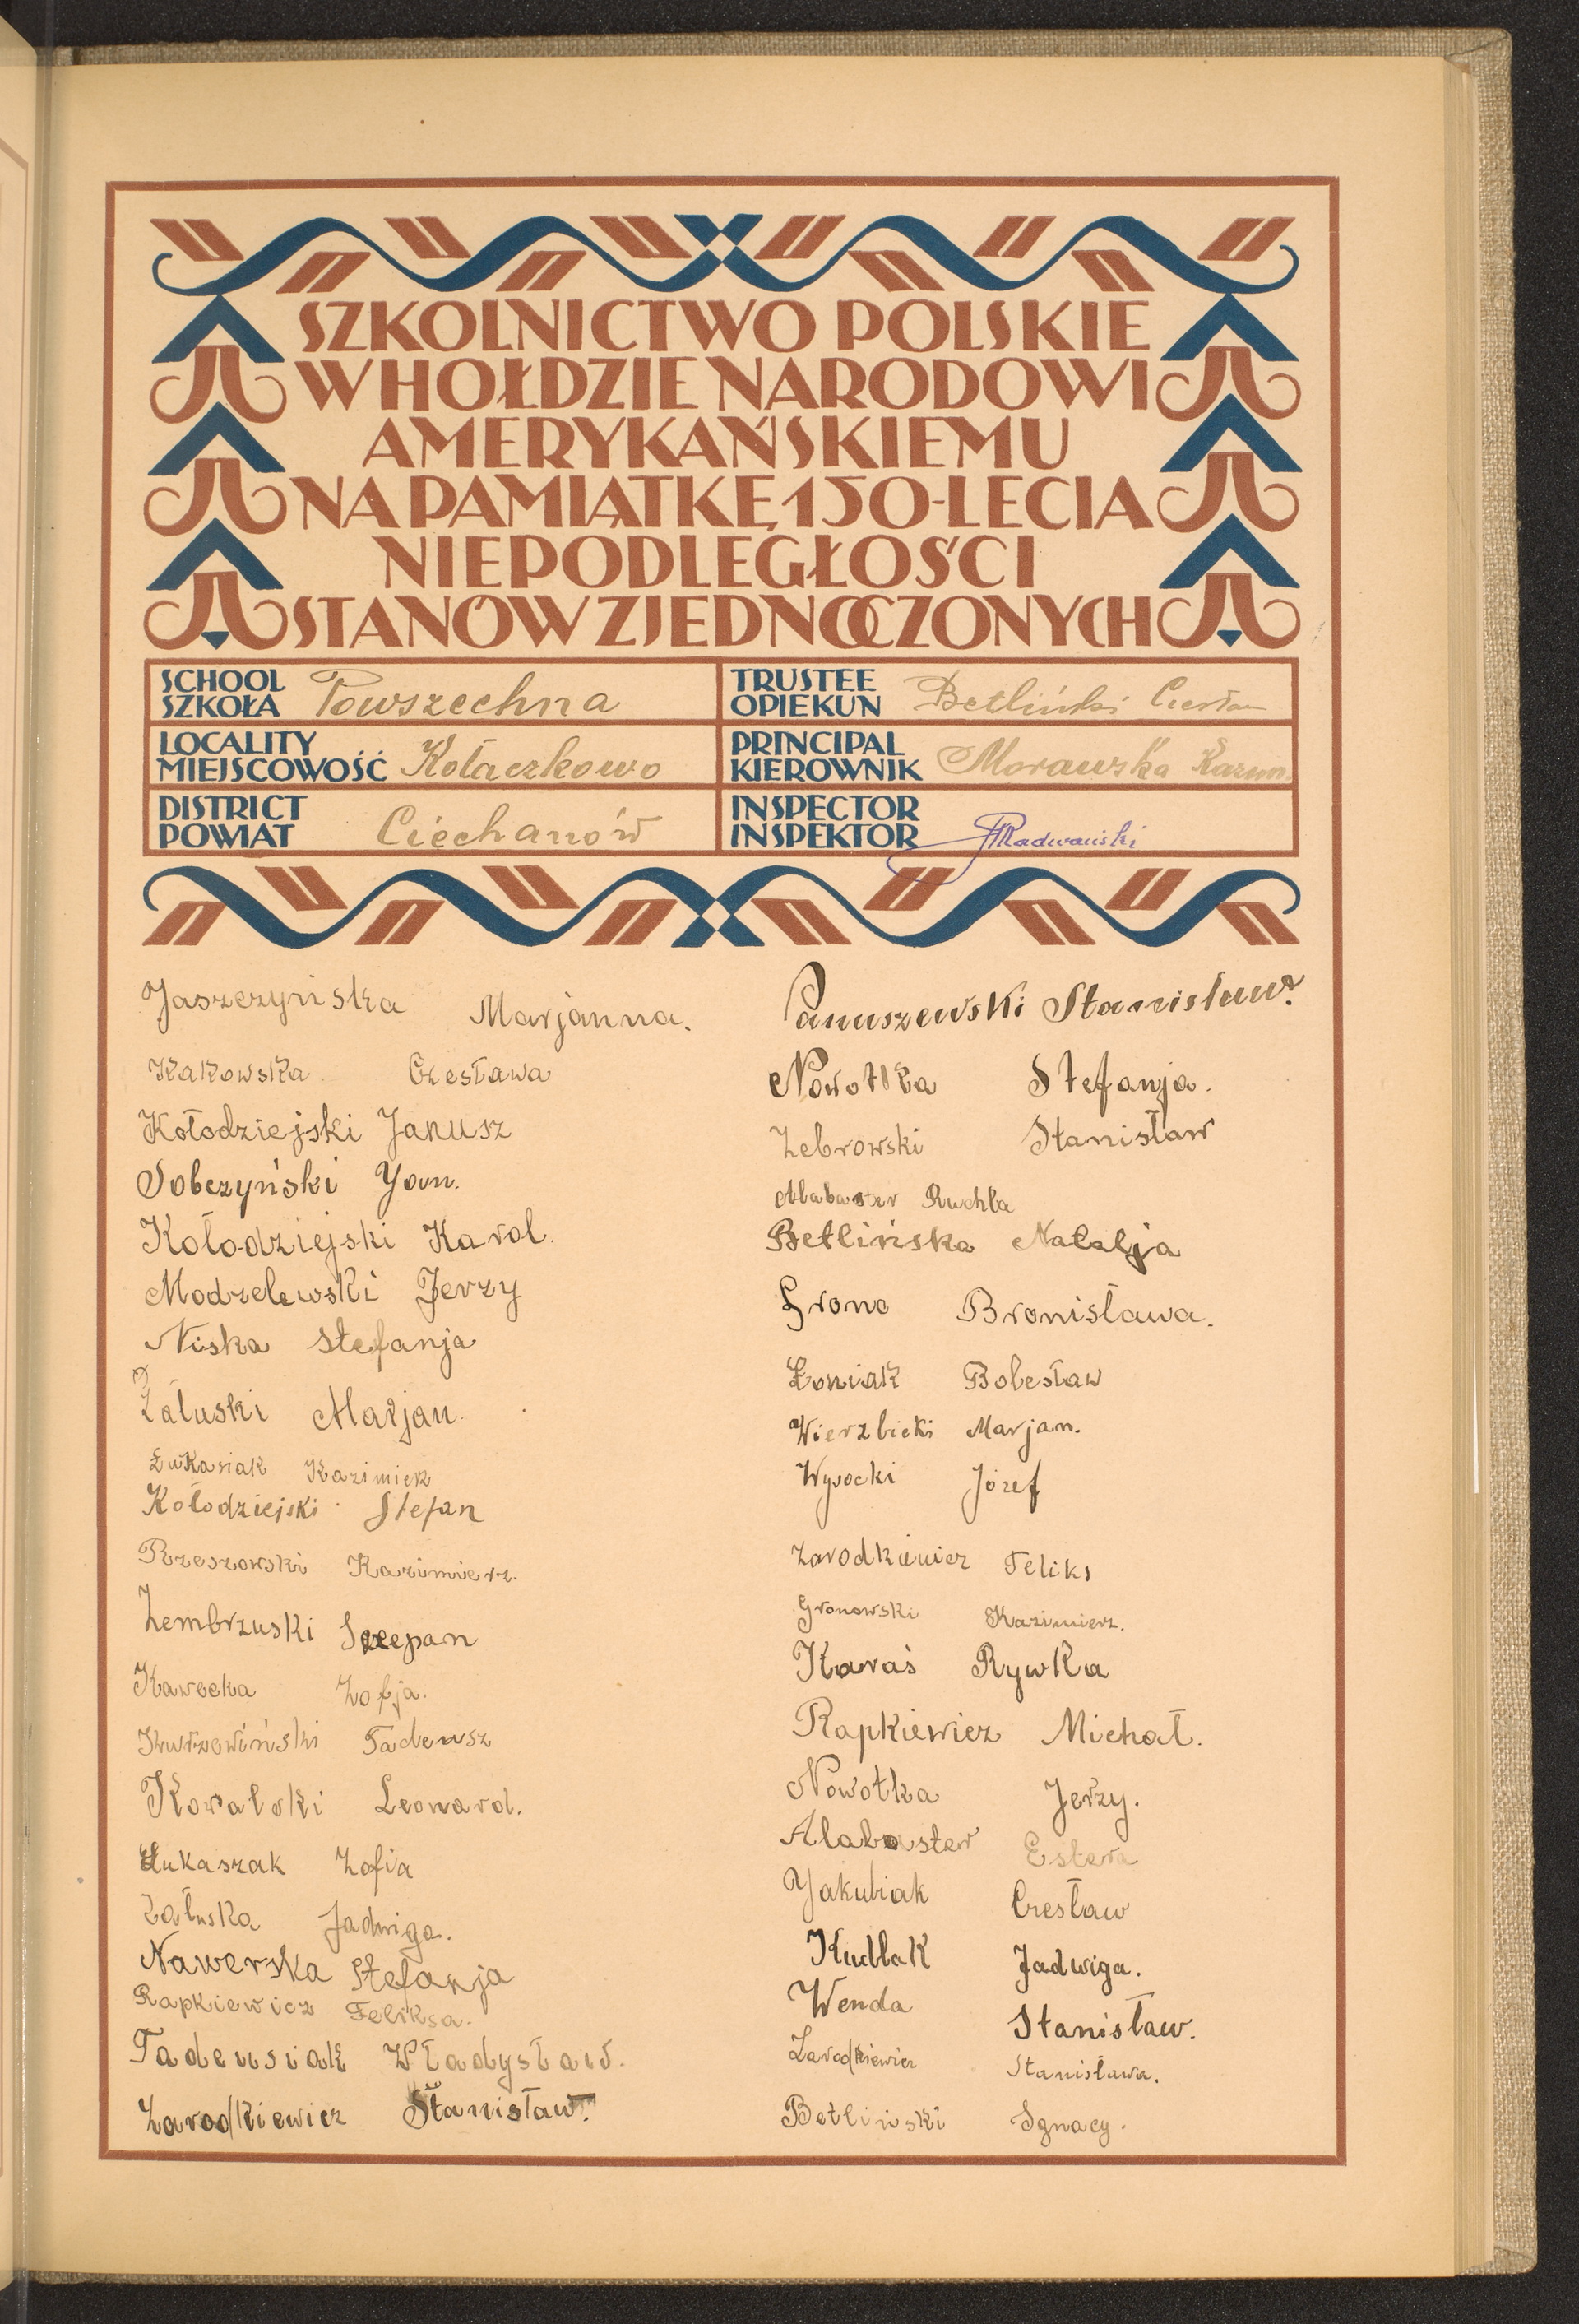 SZKOLNICTWO POLSKIE
W HOŁDZIE NARODOWI
AMERYKAŃSKIEMU
NA PAMIĄTKĘ 150-LECIA
NIEPODLEGŁOŚCI
STANÓW ZJEDNOCZONYCH
SCHOOL
SZKOŁA Powszechna
TRUSTEE
OPIEKUN Betliński
LOCALITY
MIEJSCOWOŚĆ Kołaczkowo
PRINCIPAL
KIEROWNIK Morawska Kazim.
DISTRICT
POWIAT Ciechanów
INSPECTOR
INSPEKTOR Radwański
Jaszczyńska Marjanna.
Kakowska Czesława
Kołodziejski Janusz
Sobczyński Yan.
Kołodziejski Karol.
Modzelewski Jerzy
Niska Stefanja
Załuski Marjan.
Łukasiak Kazimierz
Kołodziejski Stefan
Rzeszowski Kazimierz.
Zembrzuski Szczepan
Kawecka Zofja.
Tadeusz
Kowalski Leonard.
Łukaszak Zofia
Załuska Jadwiga.
Nawerska Stefanja
Rapkiewicz Feliksa.
Tadeusiak Władysław.
Zarodkiewicz Stanisław.
Panuszewski Stanisław.
Nowotka Stefanja.
Żebrowski Stanisław
Alabaster Ruchla
Betlińska Natalja
Bronisława.
Łoniak Bolesław
Wierzbicki Marjan.
Wysocki Józef
Zarodkiewicz Feliks
Gronowski Kazimierz.
Karaś Rywka
Rapkiewicz Michał.
Nowotka Jerzy.
Alabaster Estera
Yakubiak Czesław
Kudlak Jadwiga.
Wenda Stanisław.
Zarodkiewicz Stanisława.
Betliński Ignacy.